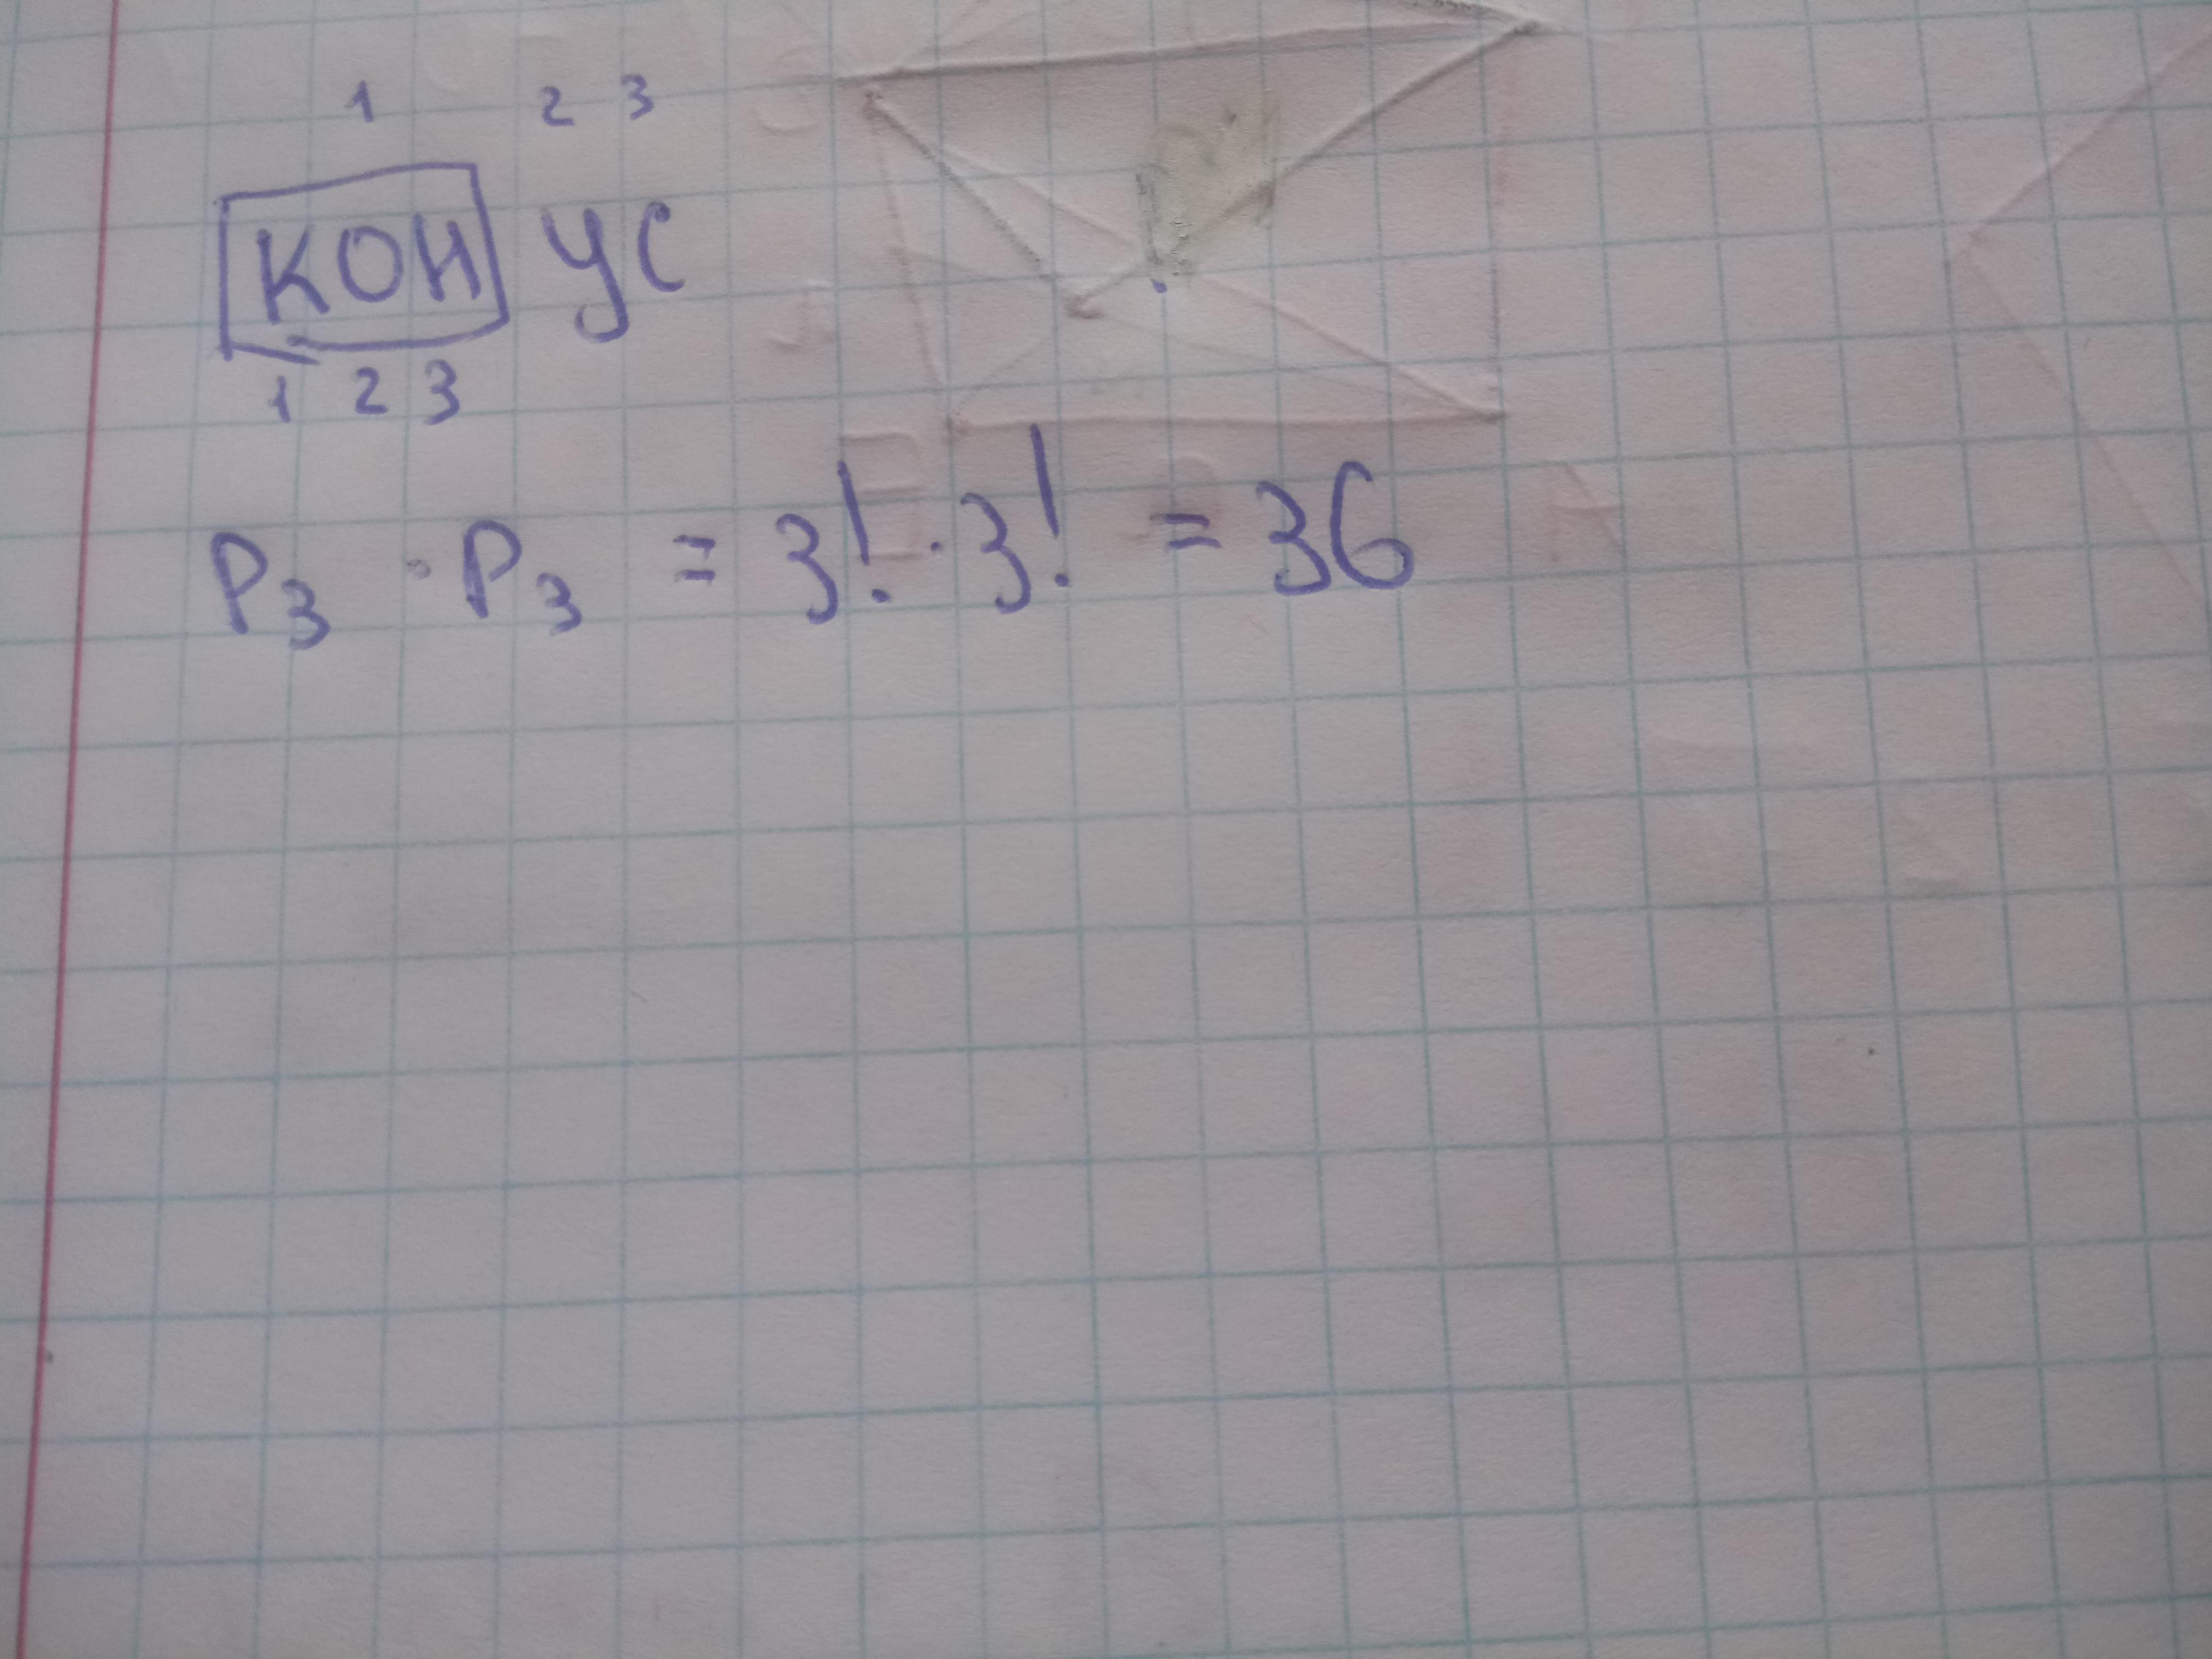 1 2 3
КОН УС
1 2 3
P₃ · P₃ = 3! · 3! = 36